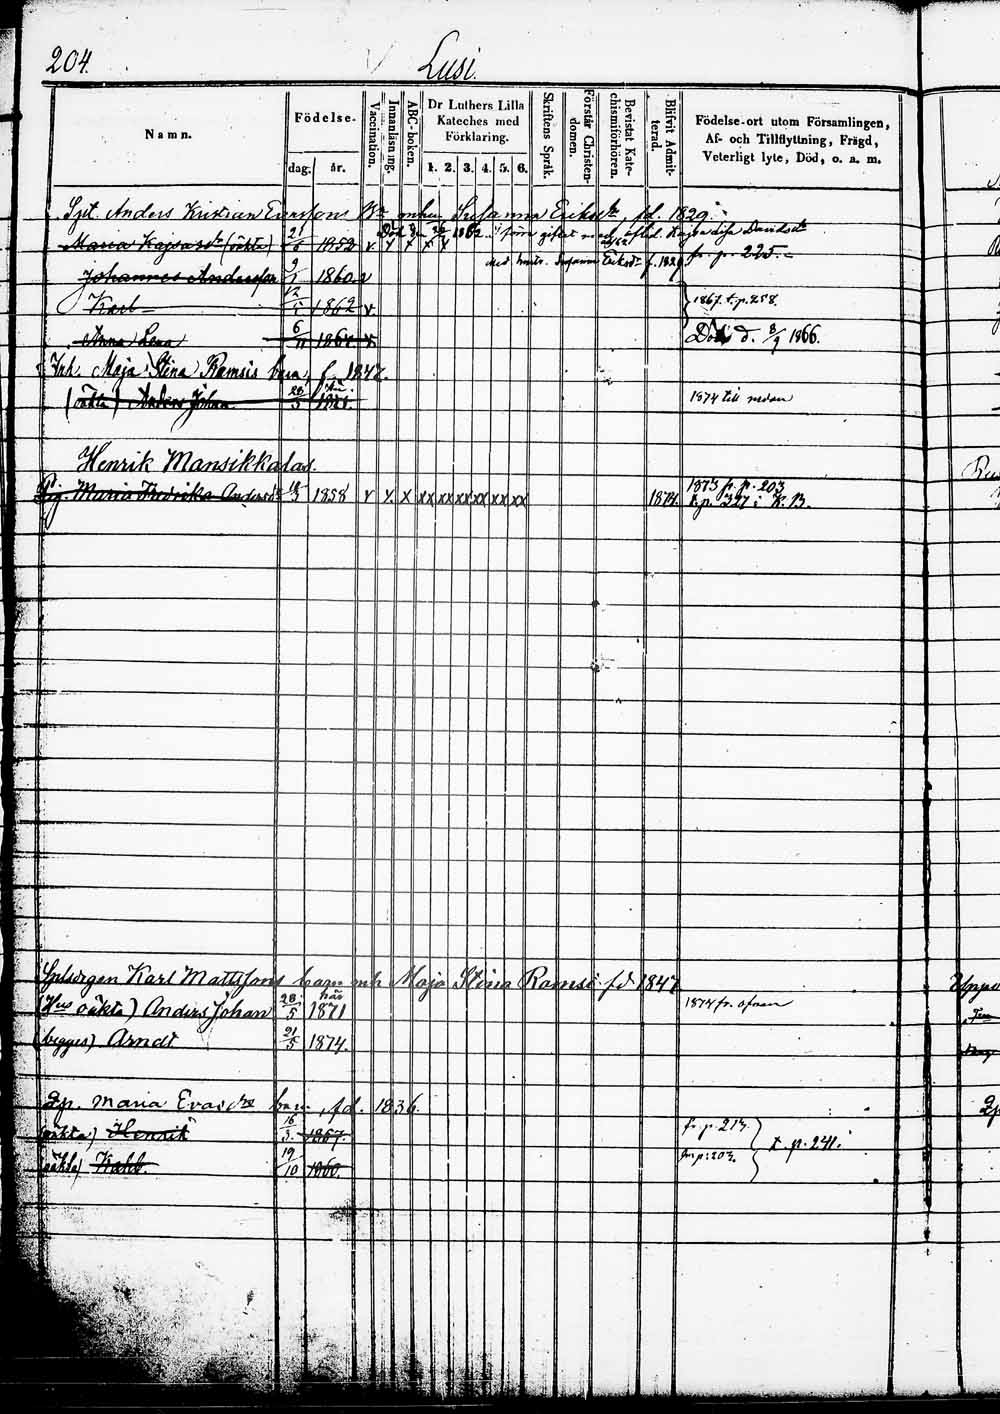 204.
Lusi.
Namn.
Födelse-
dag.
år.
Vaccination.
Innanläsning.
ABC-boken.
Dr Luthers Lilla Kateches med Förklaring.
1. 2. 3. 4. 5. 6.
Skriftens Språk.
Förstår Christendomen.
Bevistat Katechismiförhören.
Blifvit Admitterad.
Födelse-ort utom Församlingen,
Af- och Tillflyttning, Frägd,
Veterligt lyte, Död, o. a. m.
Anders Kristian Susanna Eriksdr, fd. 1829.
Död den 1862 förra giftet med Davidsdr
Maria Kajsa (oäkta) 21/6 1852 v x x x x fr. p. 225.
med Susanna Eriksdr f. 1829
Johannes Andersson 9/1 1860 v
Karl 12/5 1862 v 1867 t. p. 258.
Anna Lena 6/11 1864 v Död d. 8/9 1866.
Inh. Maja Stina Ramsis barn, f. 1847.
(oäkta) Anders Johan 28/5 1871. 1874 till nedan
Henrik Mansikkalas.
Pig. Maria Fredrika Andersdr 18/3 1858 v x x xx xx xx xx xx xx 1874. 1873 fr. p. 203
t. p. 327 i K. B.
Karl Mattssons barn mh Maja Stina Ramsi fd 1847
(Hus oäkta) Anders Johan 28/5 1871 1874 fr. ofvan
(begges) Arndt 21/5 1874.
Maria barn, fd. 1836.
(oäkta) Henrik 16/3 1867. fr. p. 214.
t. p. 241.
(oäkta) 19/10 1860. fr. p. 203.